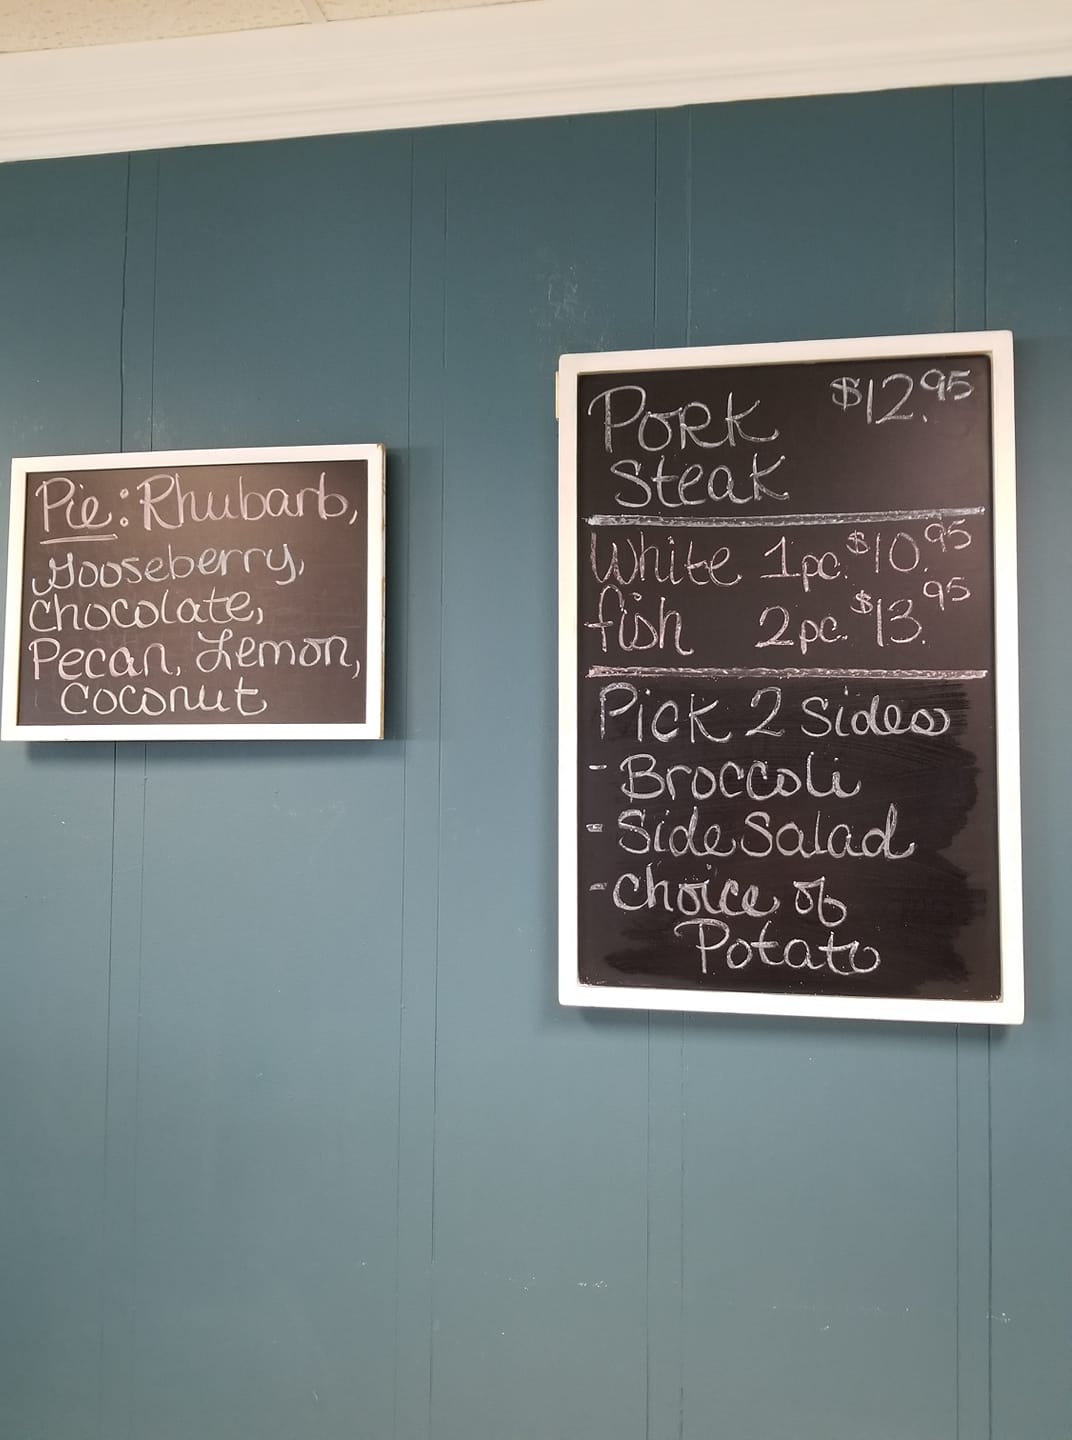 Pie: Rhubarb,
Gooseberry,
Chocolate,
Pecan, Lemon,
Coconut
Pork $12.95
Steak
White 1pc. $10.95
fish 2pc. $13.95
Pick 2 Sides
- Broccoli
- Side Salad
- Choice of
Potato